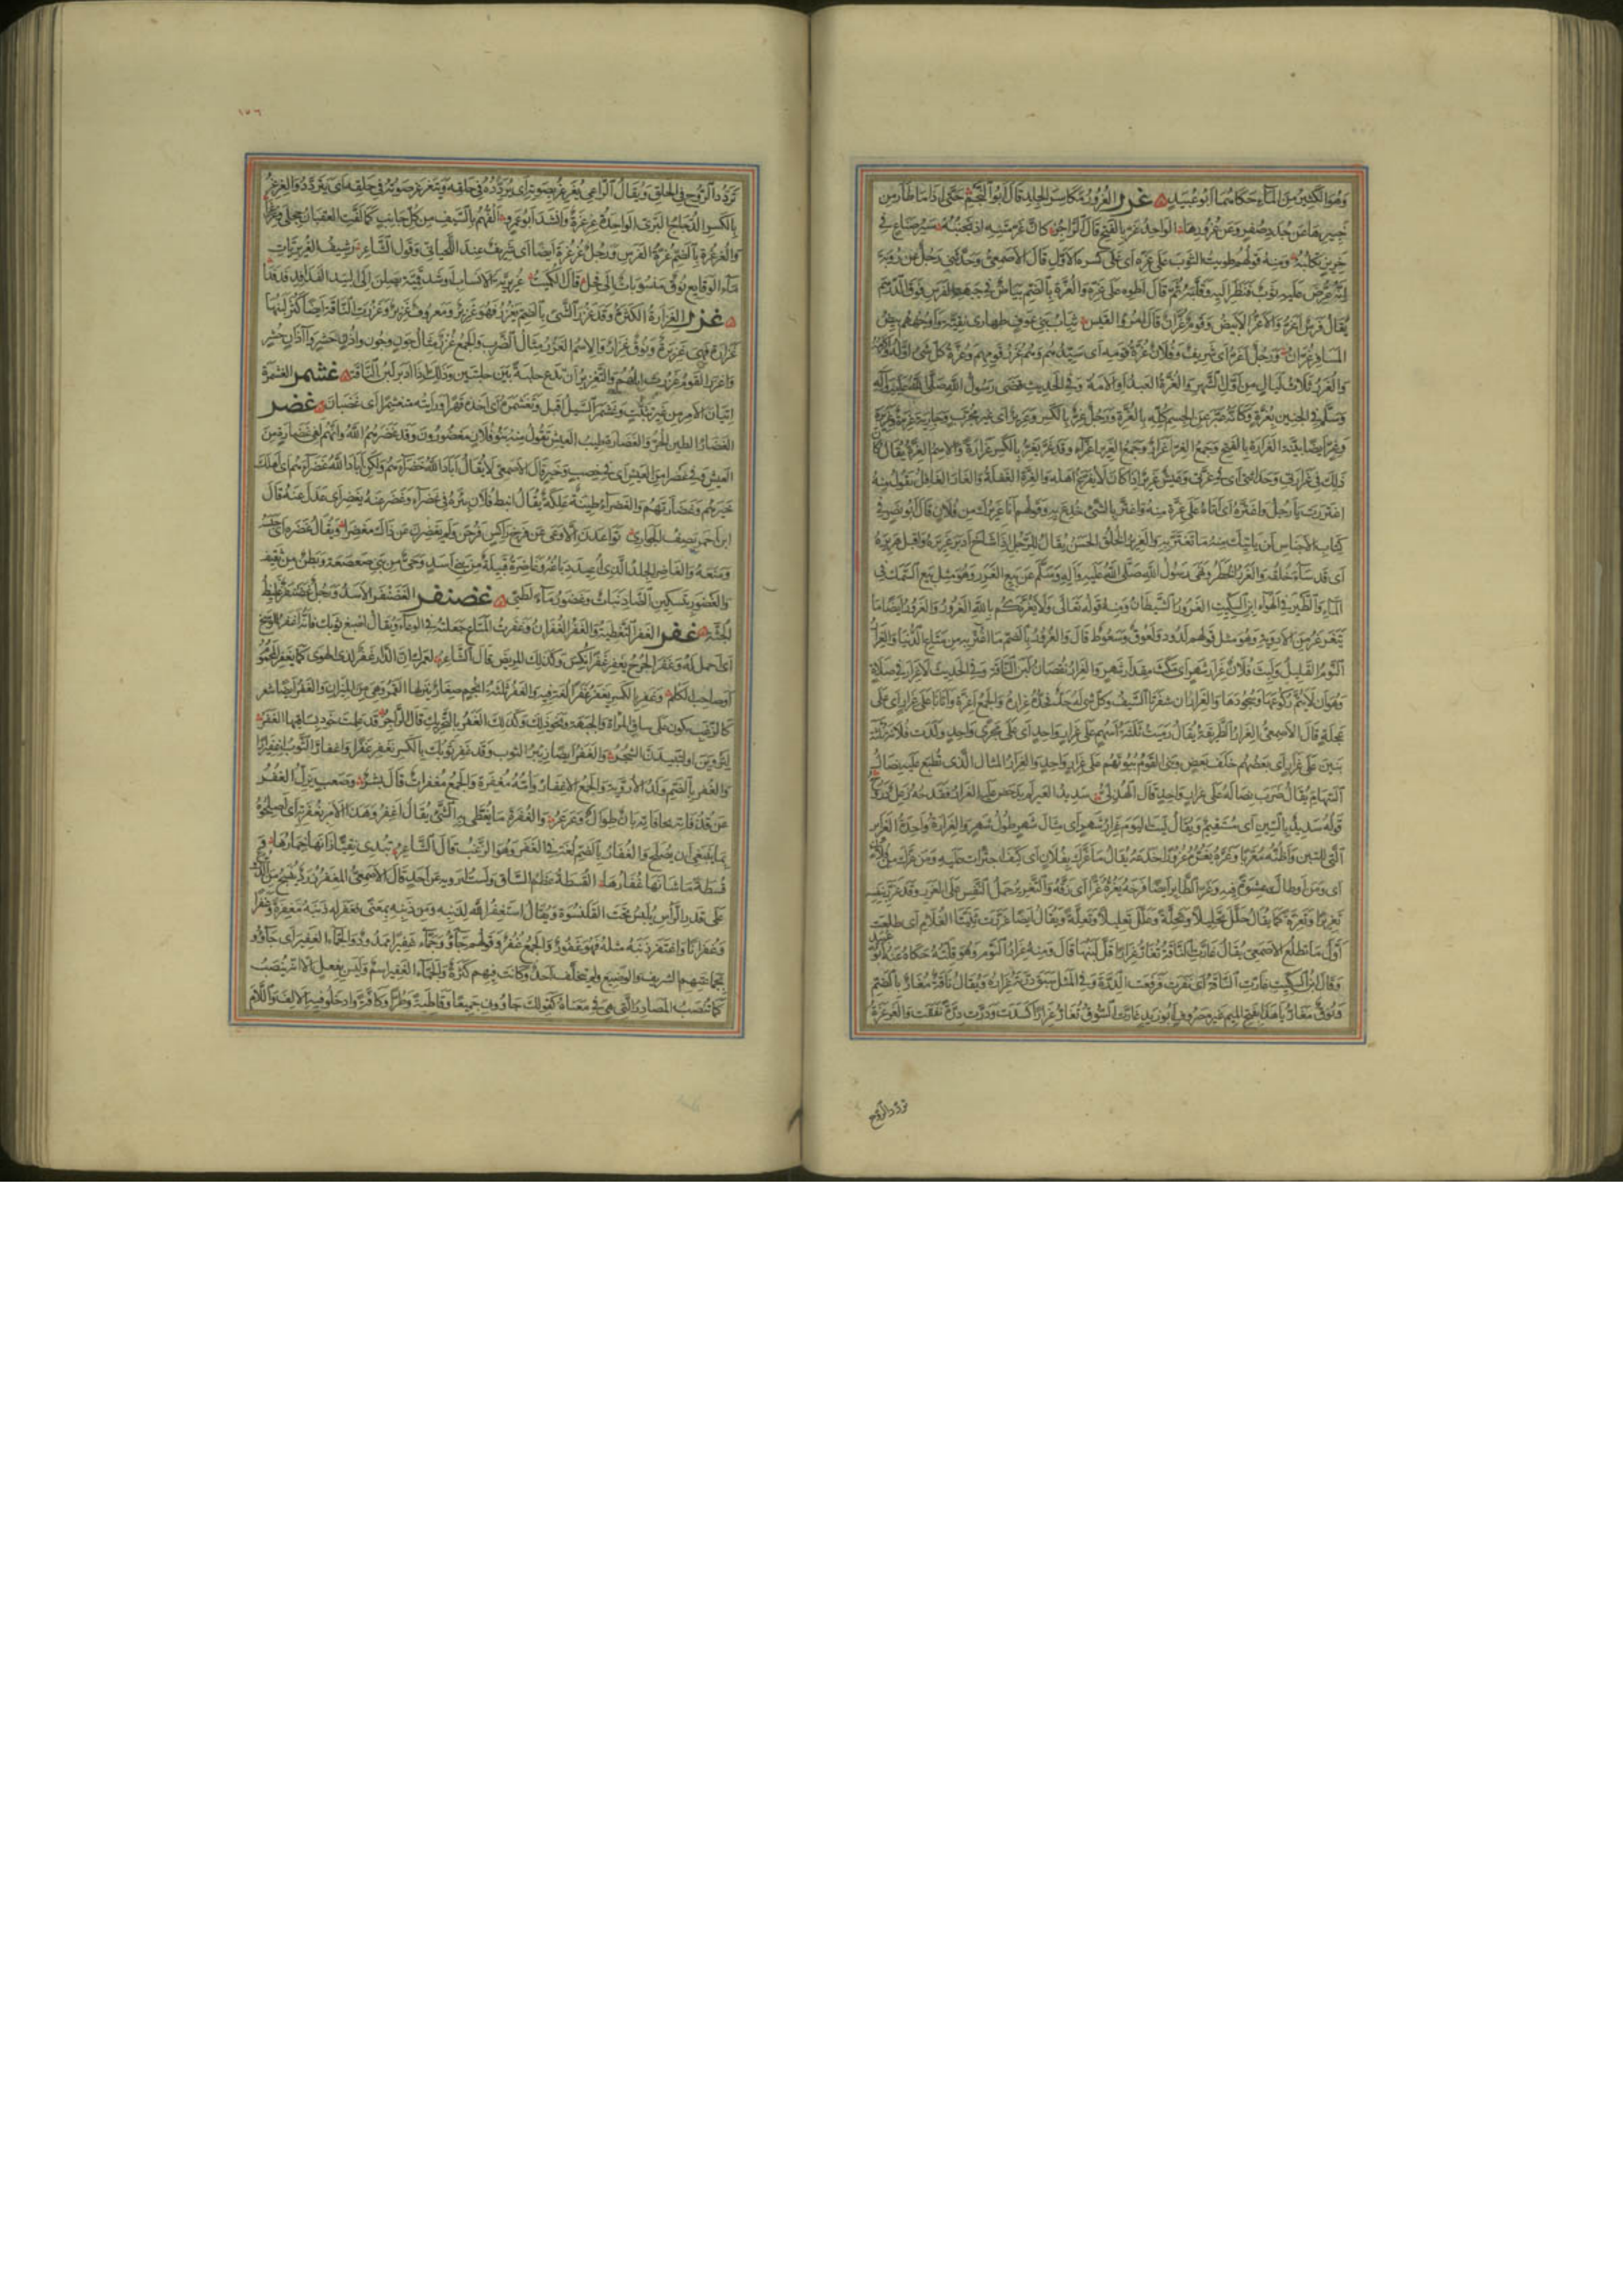 وهو الكثير من الماء حكاهما أبو عبيد غرر الغرور مكاسر الجلد قال أبو النجم حتى إذا ما طار من
خبيرها عن جدد صفر وعن غرورها الواحد غر بالفتح قال الراجز كأن غر متنه إذ تجنبه سير صناع في
خرير تكلبه ومنه قولهم طويت الثوب على غره أي على كسره الأول قال الأصمعي وحدثني رجل عن رؤبة
أنه عرض عليه ثوب فنظر إليه وقلبه ثم قال اطوه على غره والغرة بالضم بياض في جبهة الفرس فوق الدرهم
يقال فرس أغر والأغر الأبيض وقوم غران قال امرؤ القيس ثياب بني عوف طهارى نقية وأوجههم بيض
المسافر غران ورجل أغر أي شريف وفلان غرة قومه أي سيدهم وهم غرر قومهم وغرة كل شيء أوله وأكرمه
والغرر ثلاث ليال من أول الشهر والغرة العبد أو الأمة وفي الحديث قضى رسول الله صلى الله عليه وآله
وسلم في الجنين بغرة وكأنه عبر عن الجسم كله بالغرة ورجل غر بالكسر وغرير أي غير مجرب وجارية غرة وغريرة
وغر أيضا بينة الغرارة بالفتح وجمع الغر أغرار وجمع الغرير أغراء وقد غر يغر بالكسر غرارة والاسم الغرة يقال كان
ذلك في غرارتي وحداثتي أي في غرتي وعيش غرير إذا كان لا يفزع أهله والغرة الغفلة والغار الغافل تقول منه
اغتررت يا رجل واغتره أي أتاه على غرة منه واغتر بالشيء خدع به وقولهم أنا غريرك من فلان قال أبو نصر في
كتاب الأجناس أي لن يأتيك منه ما تغتر به والغرير الخلق الحسن يقال للرجل إذا شاخ أدبر غريره وأقبل هريره
أي قد ساء خلقه والغرر الخطر ونهى رسول الله صلى الله عليه وآله وسلم عن بيع الغرر وهو مثل بيع السمك في
الماء والطير في الهواء ابن السكيت الغرور الشيطان ومنه قوله تعالى ولا يغرنكم بالله الغرور والغرور أيضا ما
يتغرغر به من الأدوية وهو مثل قولهم لدود ولعوق وسعوط قال والغرور بالضم ما اغتر به من متاع الدنيا والغرار
النوم القليل ولبث فلان غرار شهر أي مكث مقدار شهر والغرار نقصان لبن الناقة وفي الحديث لا غرار في صلاة
وهو أن لا يتم ركوعها وسجودها والغراران شفرتا السيف وكل شيء له حد فحده غراره والجمع أغرة وأتانا على غرار أي على
عجلة قال الأصمعي الغرار الطريقة يقال رميت ثلثة أسهم على غرار واحد أي على مجرى واحد وولدت فلانة ثلثة
بنين على غرار أي بعضهم خلف بعض وبنى القوم بيوتهم على غرار واحد والغرار المثال الذي تطبع عليه نصال
السهام يقال ضرب نصاله على غرار واحد قال الهذلي سديد العير لم يدحض عليه الغرار فقدحه زعل دروج
قوله سديد بالسين أي مستقيم ويقال لبث اليوم غرار شهر أي مثال شهر طول شهر والغرارة واحدة الغرائر
التي للتبن وأظنه معربا وغره يغره غرورا خدعه يقال ما غرك بفلان أي كيف اجترأت عليه ومن غرك من فلان
أي ومن أوطأك عشوة فيه وغر الطائر أيضا فرخه يغره غرا أي زقه والتغرير حمل النفس على الغرر وقد غرر بنفسه
تغريرا وتغرة كما يقال حلل تحليلا وتحلة وعلل تعليلا وتعلة ويقال أيضا غررت ثنيتا الغلام أي طلعت
أول ما تطلع الأصمعي يقال غارت الناقة تغار غرارا قل لبنها قال ومنه غرار النوم وهو قلته حكاه عنه أبو عبيد
وقال ابن السكيت غارت الناقة أي نفرت فرفعت الدرة وفي المثل سبق درته غراره ويقال ناقة مغار بالضم
ونوق مغار يا هذا بفتح الميم غير مصروف أبو زيد غارت السوق تغار غرارا كسدت ودرت درة نفقت والغرغرة
تردد الروح
١٥٦
تردد الروح في الحلق ويقال الراعي يغرغر بصوته أي يردده في حلقه ويتغرغر صوته في حلقه أي يتردد والغرغر
بالكسر الدجاج البري الواحدة غرغرة وأنشد أبو عمرو ألفهم بالسيف من كل جانب كما لفت العقبان حجلى وغرغرا
والغرغرة بالضم غرة الفرس ورجل غرغرة أيضا أي شريف عند اللحياني وقول الشاعر رشيف الغريريات
ماء الوقايع نوق منسوبات إلى فحل قال الكميت غريرية الأنساب أو شدقمية يصلن إلى البيد الفدافد فدفدا
غزر الغزارة الكثرة وقد غزر الشيء بالضم يغزر فهو غزير ومعروف غزير وغزرت الناقة أيضا كثر لبنها
غزارة فهي غزيرة ونوق غزار والاسم الغزر مثال الضرب والجمع غزر مثال جون وجون وأذن حشر وآذان حشر
وأغزر القوم غزرت إبلهم والتغزير أن تدع حلبة بين حلبتين وذلك إذا أدبر لبن الناقة غشمر الغشمرة
إتيان الأمر من غير تثبت وغشمر السيل أقبل وتغشمره أي أخذه قهرا ورأيته متغشمرا أي غضبان غضر
الغضار الطين الحر والغضارة طيب العيش تقول منه بنو فلان مغضورون وقد غضرهم الله وإنهم لفي غضارة من
العيش وفي غضراء من العيش أي في خصب وخير قال الأصمعي لا يقال أباد الله خضراءهم ولكن أباد الله غضراءهم أي أهلك
خيرهم وغضارتهم والغضراء طينة علكة يقال أنبط فلان بئره في غضراء وغضر عنه يغضر أي عدل عنه قال
ابن أحمر يصف الجواري تواعدن أن لا وعي عن فرج راكس فرحن ولم يغضرن عن ذاك مغضرا ويقال غضره أي حبسه
ومنعه والغاضر الجلد الذي أجيد دباغه وغاضرة قبيلة من بني أسد وحي من بني صعصعة وبطن من ثقيف
والغضور بتسكين الضاد نبات وغضور ماء لطيئ غضنفر الغضنفر الأسد ورجل غضنفر غليظ
الجثة غفر الغفر التغطية والغفر الغفران وغفرت المتاع جعلته في الوعاء ويقال اصبغ ثوبك فإنه أغفر للوسخ
أي أحمل له وغفر الجرح يغفر غفرا نكس وكذلك المريض قال الشاعر لعمرك إن الدار غفر لذي الهوى كما يغفر المحموم
أو صاحب الكلم وغفر بالكسر يغفر غفرا لغة فيه والغفر ثلثة أنجم صغار ينزلها القمر وهي من الميزان والغفر أيضا شعر
كالزغب يكون على ساق المرأة والجبهة ونحو ذلك وكذلك الغفر بالتحريك قال الراجز قد علمت خود بساقيها الغفر
ليروين أو لتبيدن الشجر والغفر أيضا زئبر الثوب وقد غفر ثوبك بالكسر يغفر غفرا واغفار الثوب اغفيرارا
والغفر بالضم ولد الأروية والجمع الأغفار وأمه مغفرة والجمع مغفرات قال بشر وصعب يزل الغفر
عن قذفاته بحافاته بان طوال وعرعر والغفرة ما يغطى به الشيء يقال اغفروا هذا الأمر بغفرته أي أصلحوه
بما ينبغي أن يصلح والغفار بالضم لغة في الغفر وهو الزغب قال الشاعر تبدي نقيا زانها خمارها و
قسطة ما شانها غفارها القسطة عظم الساق ولست أرويه عن أحد قال الأصمعي المغفر زرد ينسج من الدروع
على قدر الرأس يلبس تحت القلنسوة ويقال استغفر الله لذنبه ومن ذنبه بمعنى فغفر له ذنبه مغفرة وغفرا
وغفرانا واغتفر ذنبه مثله فهو غفور والجمع غفر وقولهم جاؤا جماء غفيرا ممدود والجماء الغفير أي جاؤا
بجماعتهم الشريف والوضيع ولم يتخلف أحد وكانت فيهم كثرة والجماء الغفير اسم وليس بفعل إلا أنه ينصب
كما تنصب المصادر التي هي في معناه كقولك جاؤوني جميعا وقاطبة وطرا وكافة وأدخلوا فيه الألف واللام